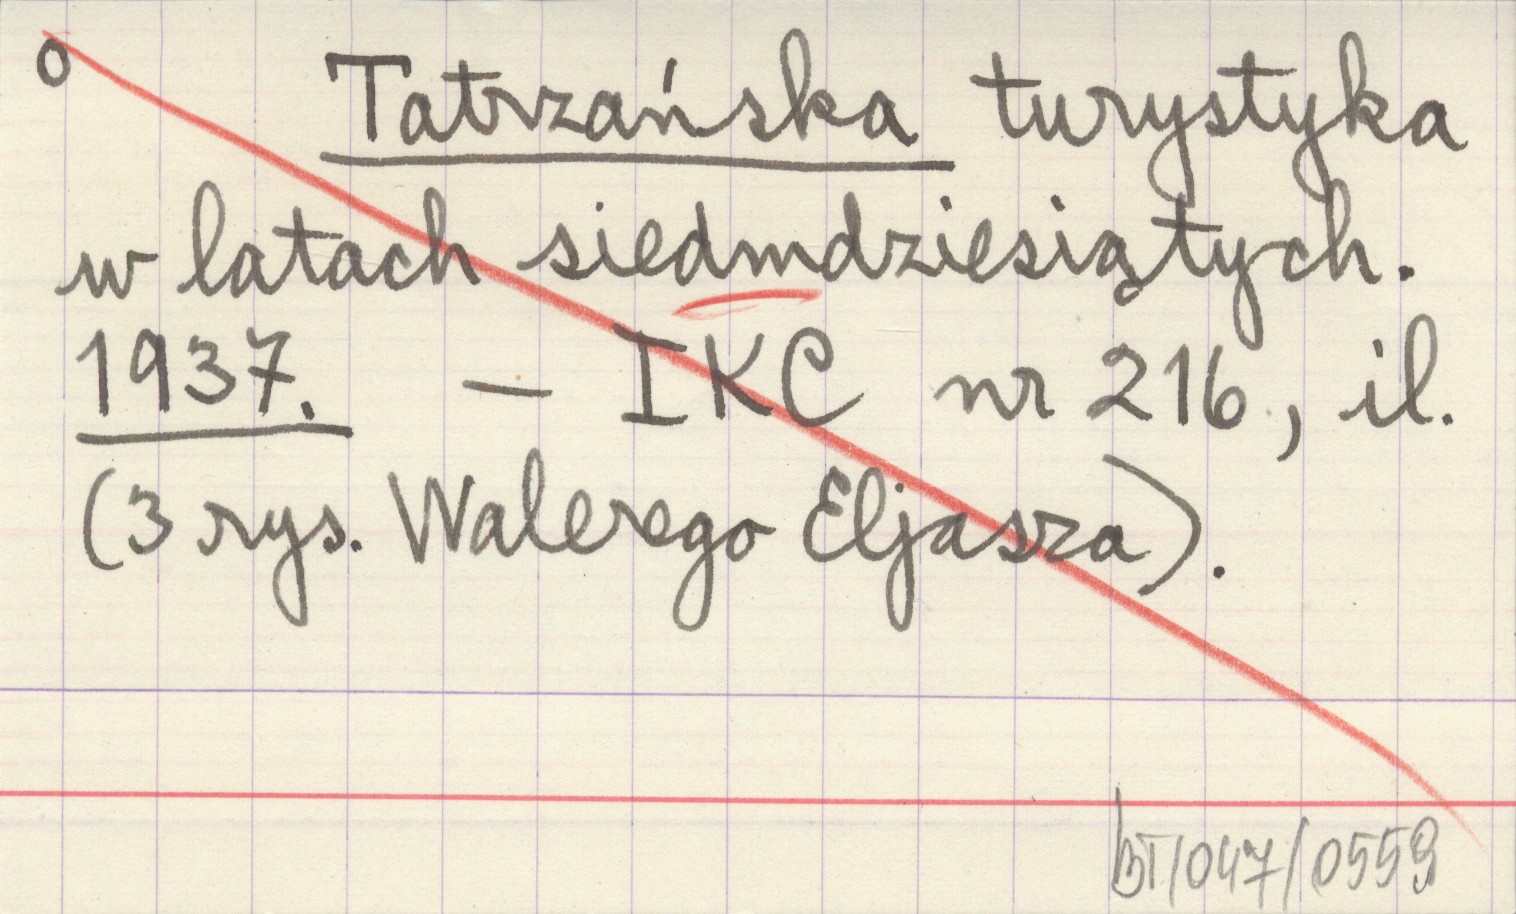 o Tatrzańska turystyka
w latach siedmdziesiątych.
1937. — IKC nr 216, il.
(3 rys. Walerego Eljasza).
BT/047/0559